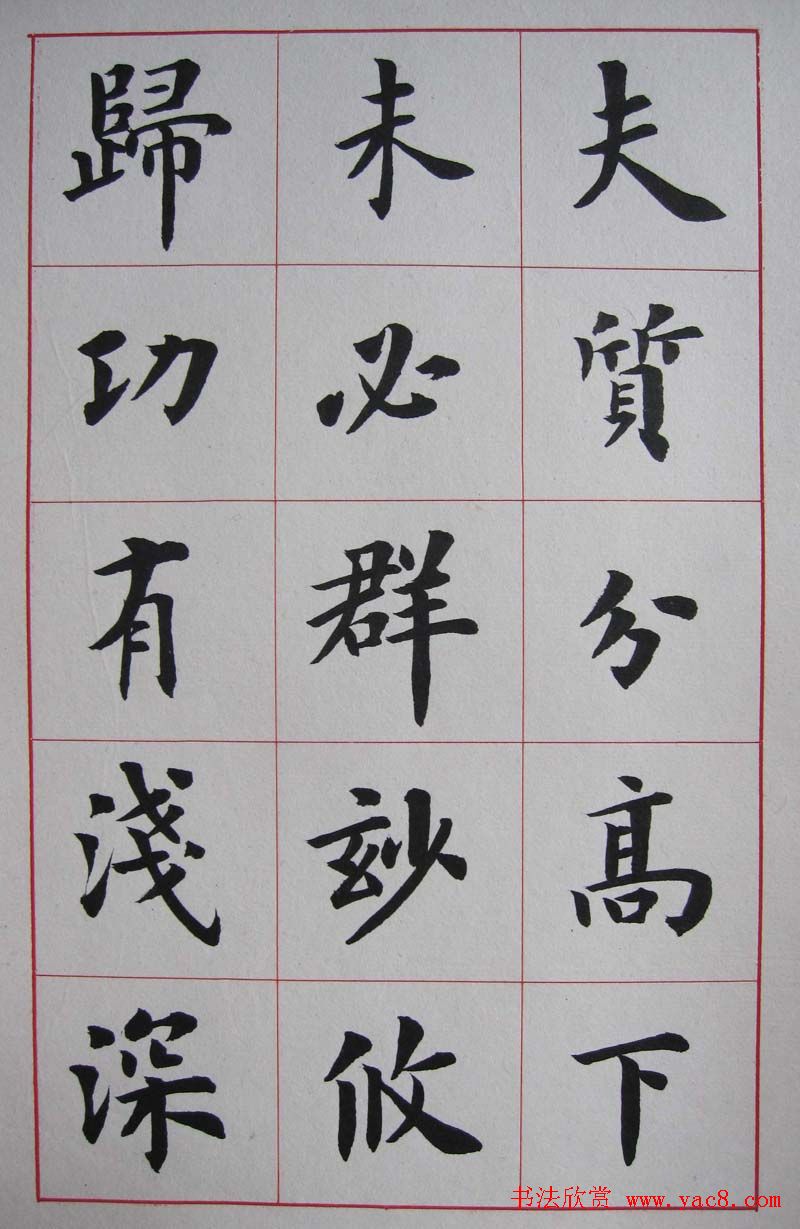 夫質分高下
未必群玅攸
歸功有淺深
书法欣赏 www.yac8.com